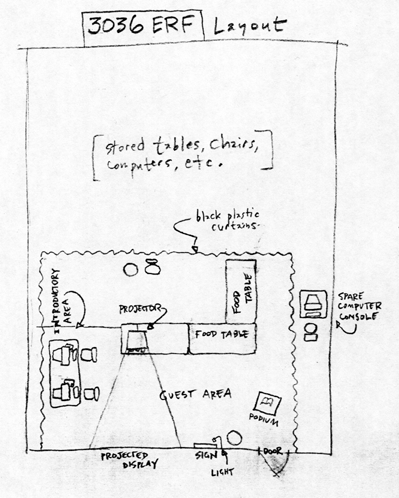 3036 ERF Layout
[stored tables, chairs,
computers, etc.]
black plastic
curtains
INTRODUCTORY
AREA
PROJECTOR
FOOD
TABLE
FOOD TABLE
SPARE
COMPUTER
CONSOLE
GUEST AREA
PODIUM
PROJECTED
DISPLAY
SIGN
LIGHT
DOOR